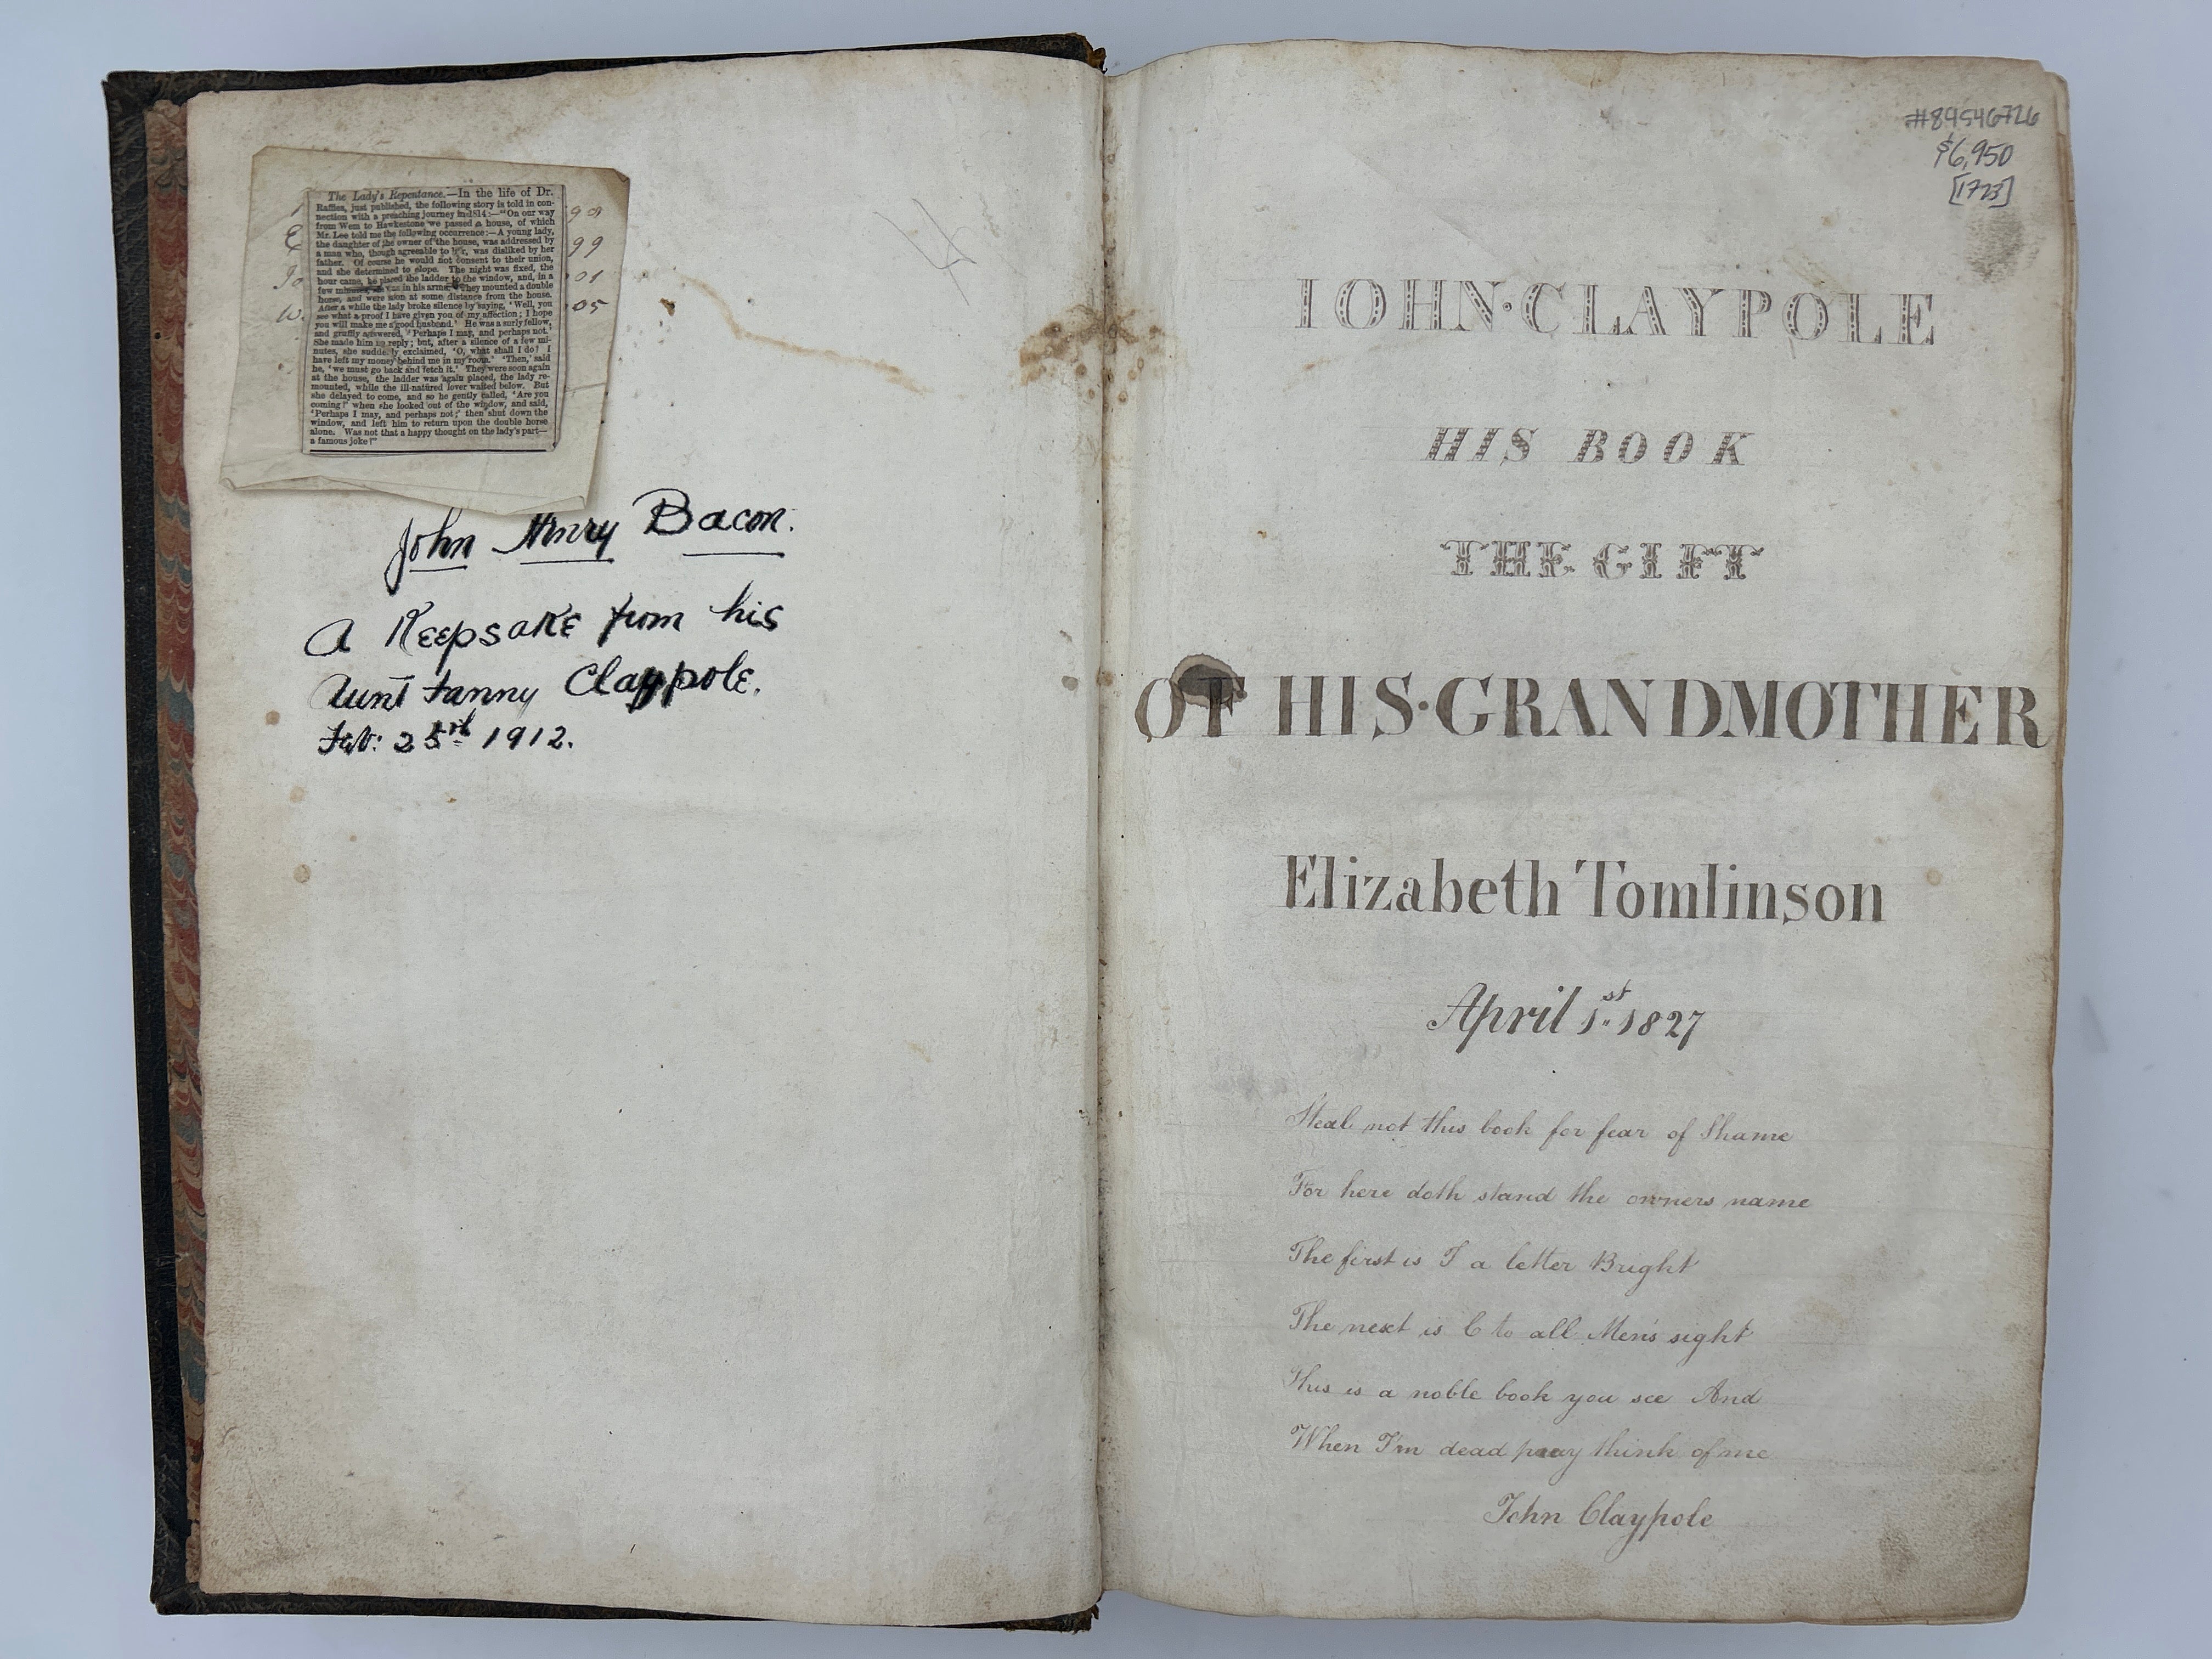 The Lady's Repentance.—In the life of Dr.
Raffles, just published, the following story is told in con-
nection with a preaching journey in 1814:—"On our way
from Wem to Hawkestone we passed a house, of which
Mr. Lee told me the following occurrence:—A young lady,
the daughter of the owner of the house, was addressed by
a man who, though agreeable to her, was disliked by her
father. Of course he would not consent to their union,
and she determined to elope. The night was fixed, the
hour came, he placed the ladder to the window, and, in a
few minutes, she was in his arms. They mounted a double
horse, and were soon at some distance from the house.
After a while the lady broke silence by saying, 'Well, you
see what a proof I have given you of my affection; I hope
you will make me a good husband.' He was a surly fellow,
and gruffly answered, 'Perhaps I may, and perhaps not.'
She made him no reply; but, after a silence of a few mi-
nutes, she suddenly exclaimed, 'O, what shall I do! I
have left my money behind me in my room.' 'Then,' said
he, 'we must go back and fetch it.' They were soon again
at the house, the ladder was again placed, the lady re-
mounted, while the ill-natured lover waited below. But
she delayed to come, and so he gently called, 'Are you
coming?' when she looked out of the window, and said,
'Perhaps I may, and perhaps not;' then shut down the
window, and left him to return upon the double horse
alone. Was not that a happy thought on the lady's part—
a famous joke!"
99
01
05
John Henry Bacon.
A Keepsake from his
Aunt Fanny Claypole.
Feb: 25th 1912.
#89546726
$6,950
[1723]
IOHN·CLAYPOLE
HIS BOOK
THE GIFT
OF HIS·GRANDMOTHER
Elizabeth Tomlinson
April 1st 1827
Steal not this book for fear of Shame
For here doth stand the owners name
The first is I a letter Bright
The next is C to all Men's sight
This is a noble book you see And
When I'm dead pray think of me
John Claypole